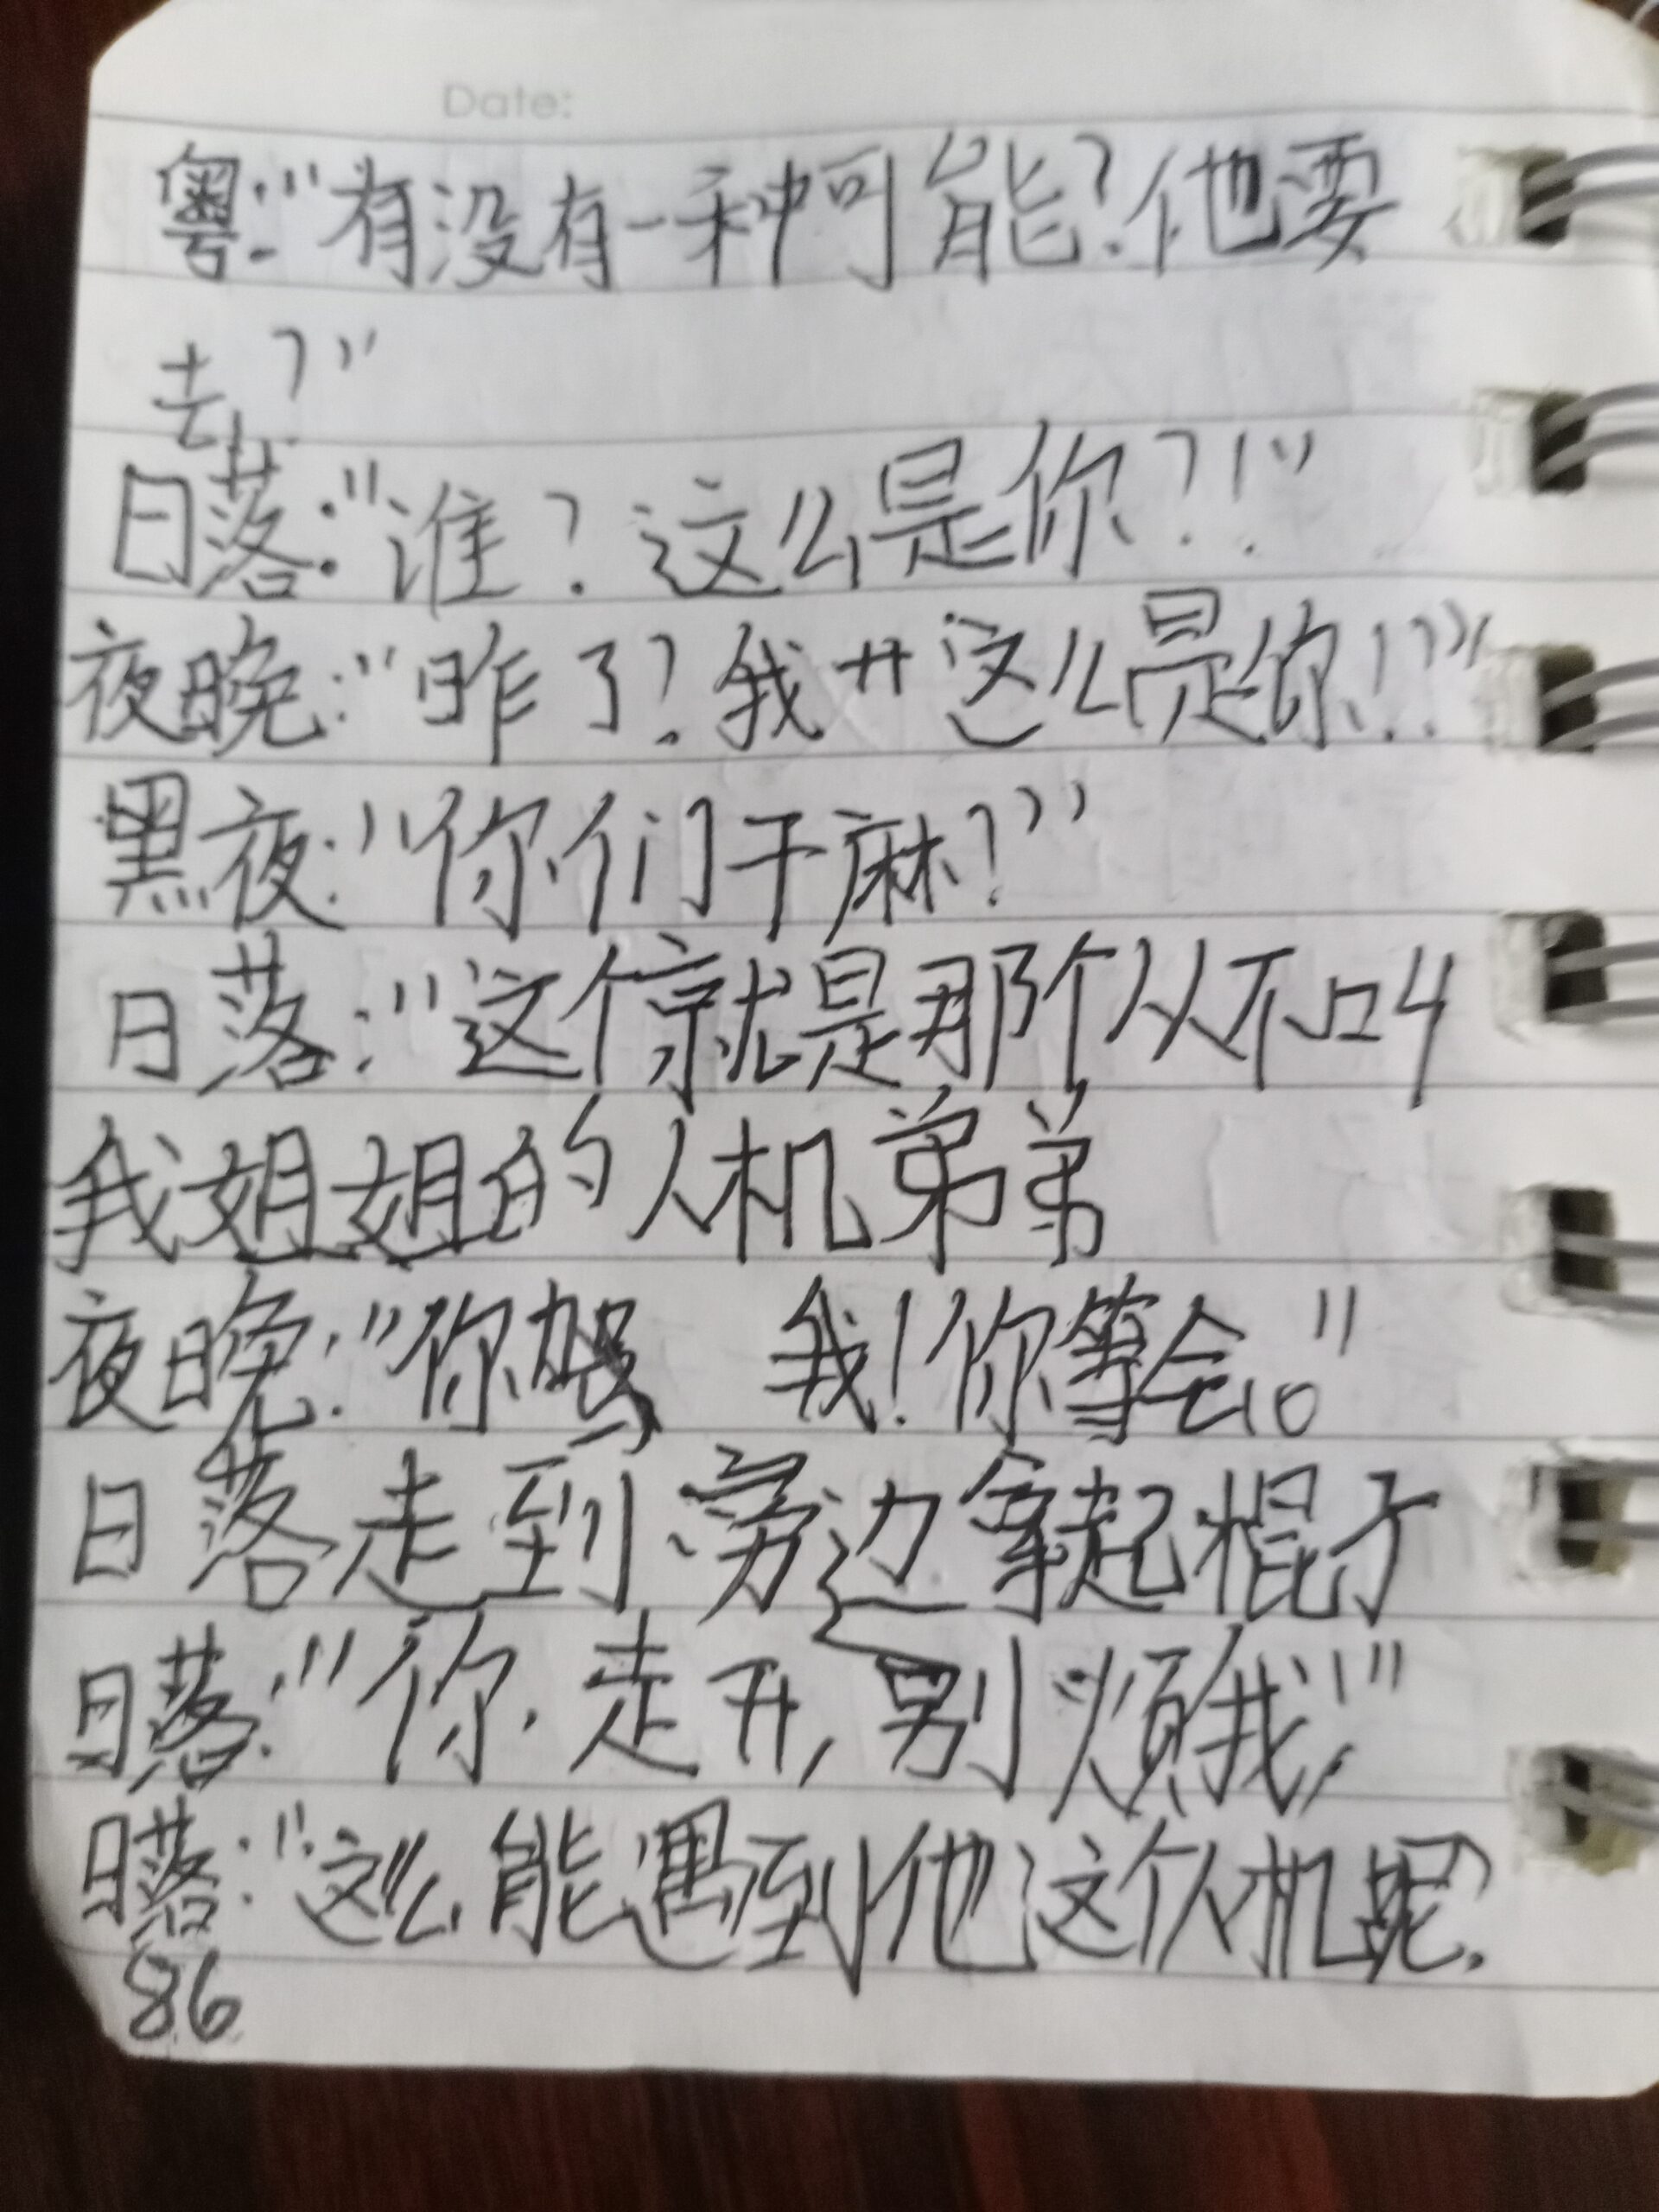 Date:
粤:"有没有一种可能?他要
去?"
日落:"谁?这么是你?!"
夜晚:"昨了?我艹这么是你!?"
黑夜:"你们干麻?"
日落:"这个就是那个从不叫
我姐姐的人机弟弟
夜晚:"你 我!你等会。"
日落走到旁边拿起棍子
日落:"你.走开,别烦我!"
日落:"这么能遇到他这个人机呢?
86